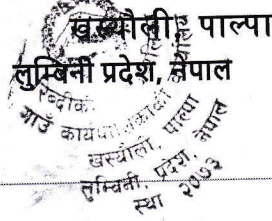 खस्यौली, पाल्पा
लुम्बिनी प्रदेश, नेपाल
गाउँ
खस्यौली, पाल्पा
लुम्बिनी, प्रदेश, नेपाल
स्था २०७३